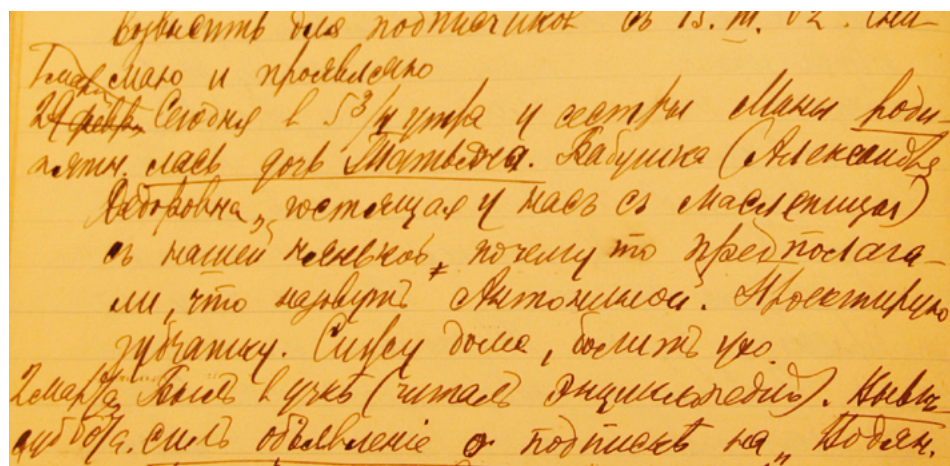 возвысить для подписчиков съ 15. III. 02. Сни-
1 марта маю и проявляю
29 февр. Сегодня в 5 3/4 утра у сестры Мани роди-
пятн. лась дочь Татьяна. Бабушка (Александра
Федоровна, гостящая у насъ съ масленицы)
съ нашей нянькой, почему то предполага-
ли, что назовутъ Антониной. Проектирую
зубчатку. Сижу дома, болитъ ухо.
2 марта Былъ в учкѣ (читалъ энциклопедию). Выве-
суббота. силъ объявленіе о подпискѣ на „Подян.